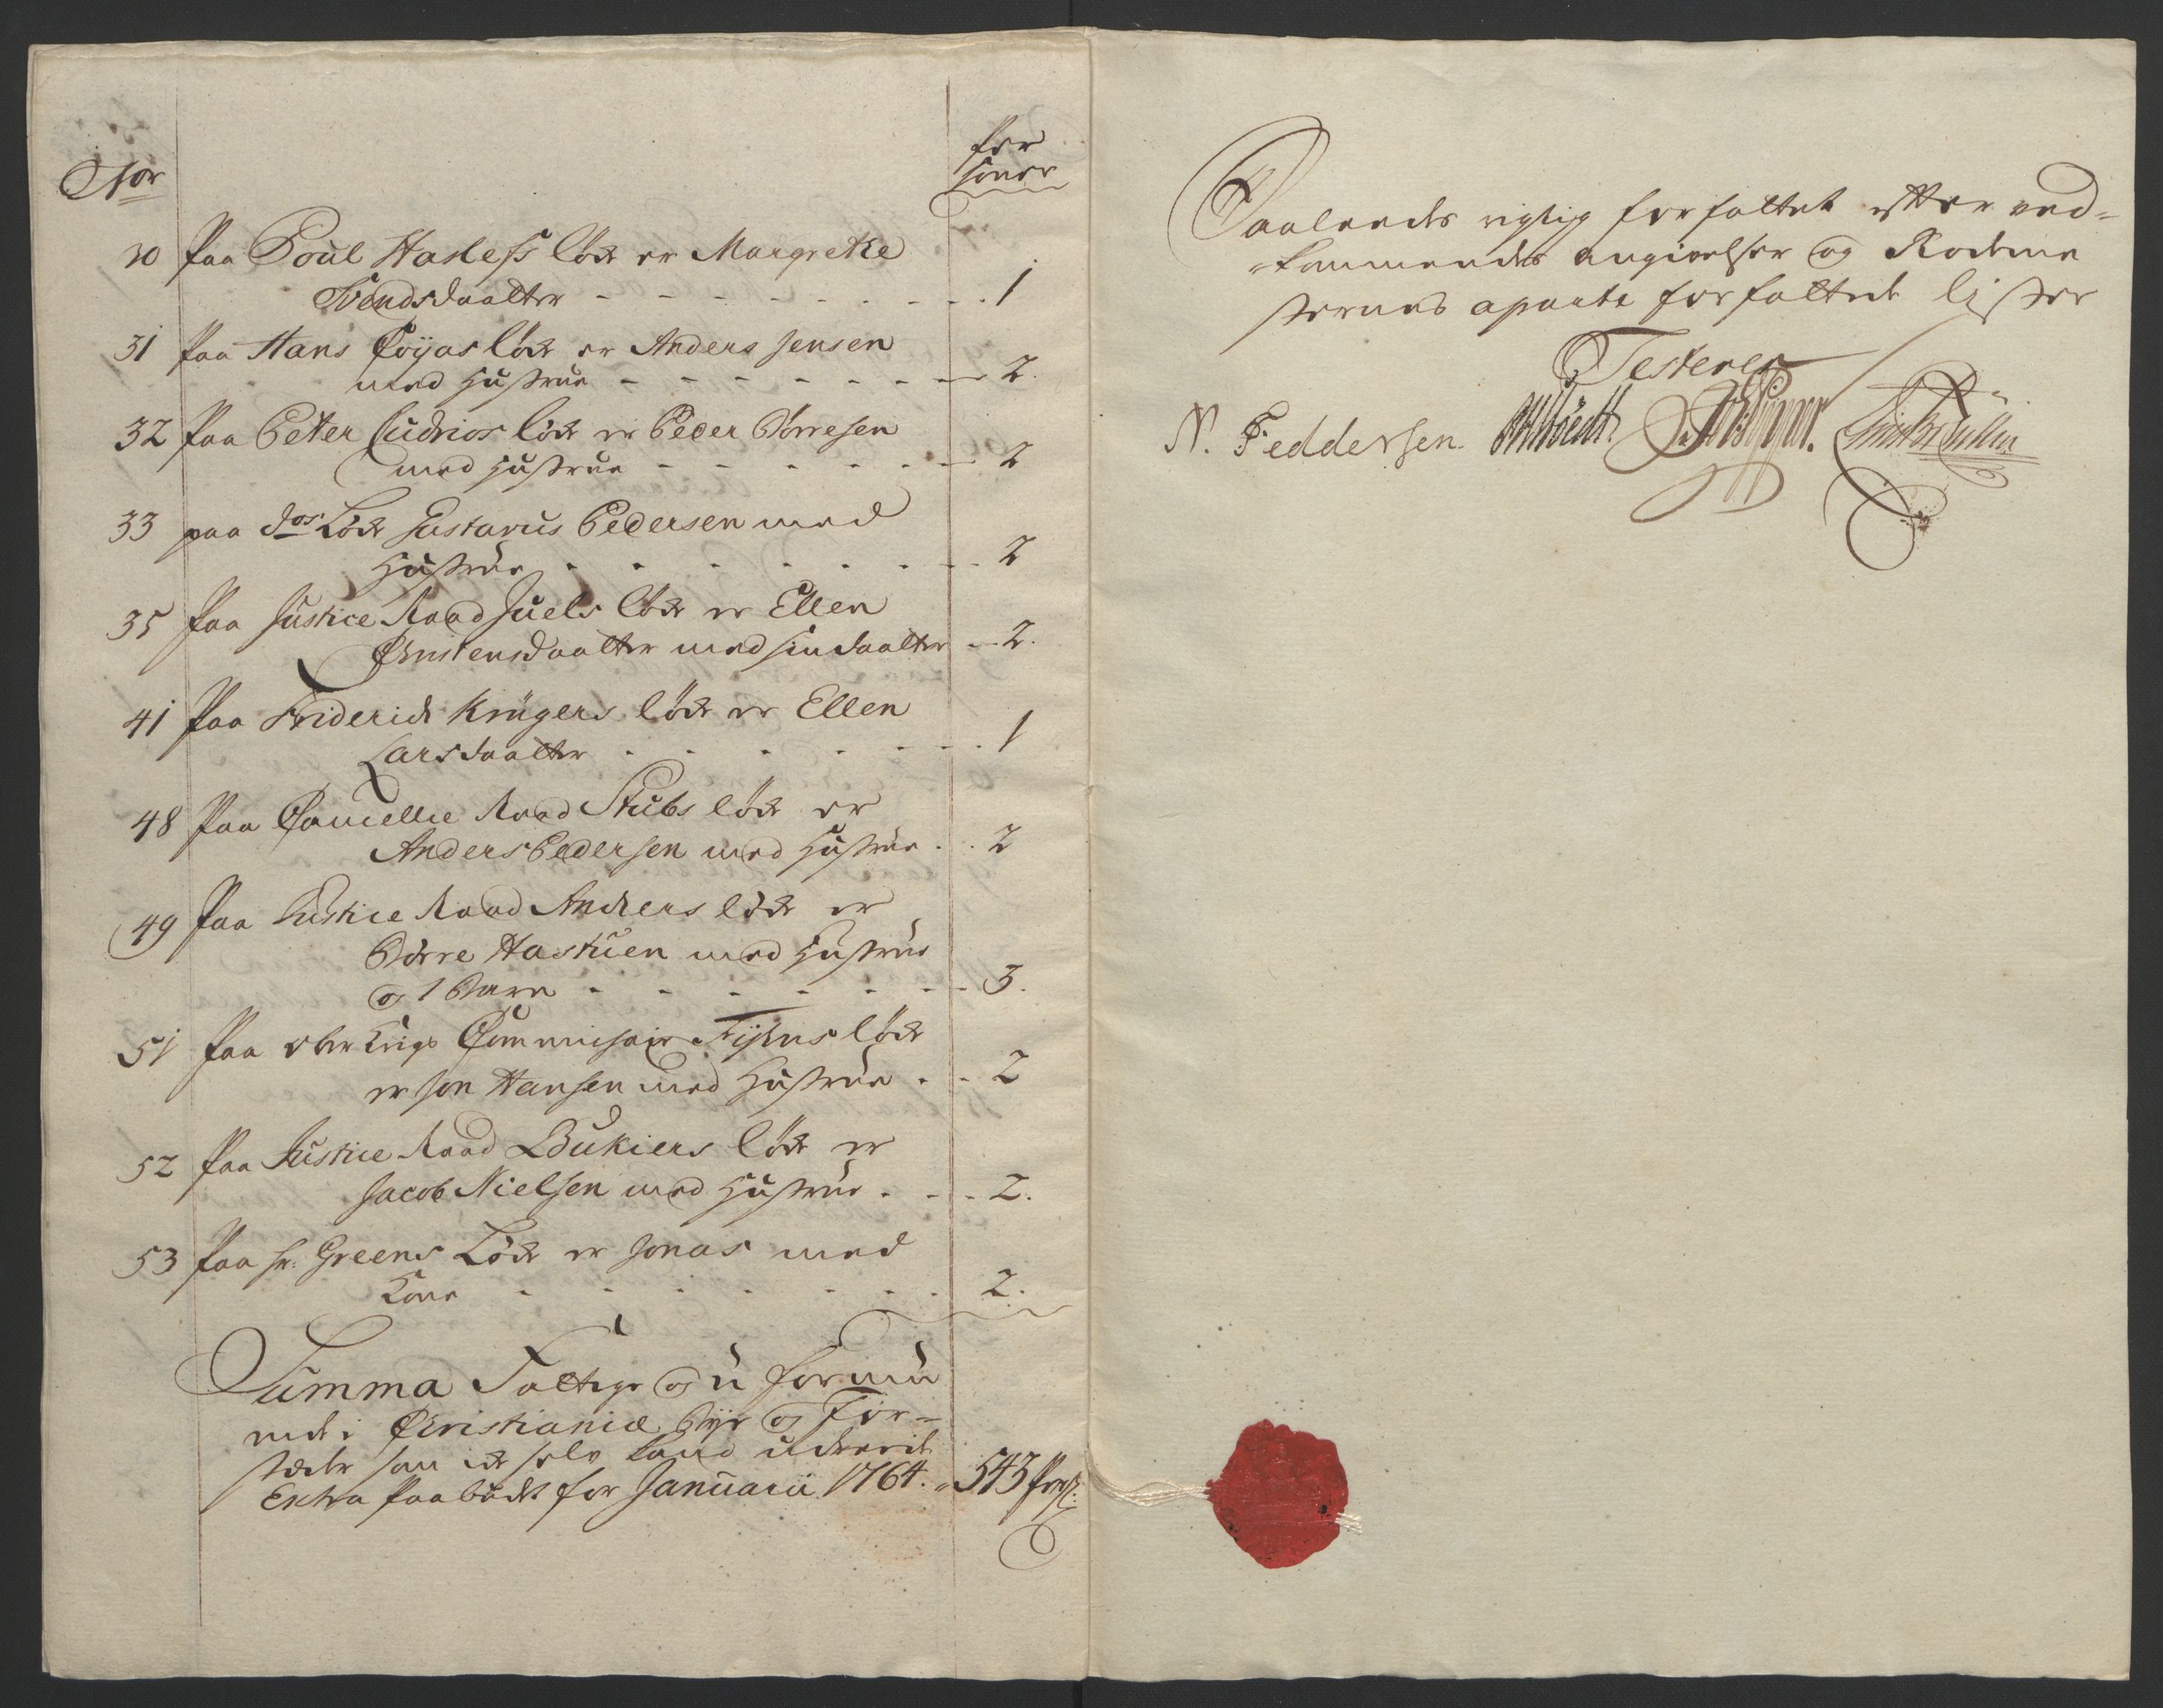 Nor
Per
soner
30 Paa Poul Hasless löcke er Margrethe
Svendsdaatter - - - - - - - 1
31 Paa Hans löcke er Anders Jensen
med Hustrue - - - - - - - 2.
32 Paa Peter löcke er Peder Börresen
med Hustrue - - - - - - 2
33 paa dos Löcke Gustavus Pedersen med
Hustrue - - - - - - - 2
35 Paa Justice Raad Juels löcke er Ellen
Christensdaatter med sin daatter - 2.
41 Paa Friderich Krügers löcke er Ellen
Larsdaatter - - - - - - - 1
48 Paa Cancellie Raad Stubs löcke er
Anders Pedersen med Hustrue - - 2
49 Paa Justice Raad Anchers löcke er
Börre Hastuen med Hustrue
og 1 Barn - - - - - - - 3.
51 Paa ober Krigs Commissair löcke
er Jon Hansen med Hustrue - - 2
52 Paa Justice Raad löcke er
Jacob Nielsen med Hustrue - - - 2.
53 Paa Hr. Greens Löcke er Jonas med
Kone - - - - - - - 2.
Summa Fattige og u formu
ende i Christiania Bye og For-
stæder som icke selv kand udreede
Extra Paabudet for Januarii 1764. - 543 Pers:
Saaledes rigtig forfattet efter ved-
-kommendes angivelser og Rodeme
sternes aparte forfattede lister
Testerer
N. Feddersen